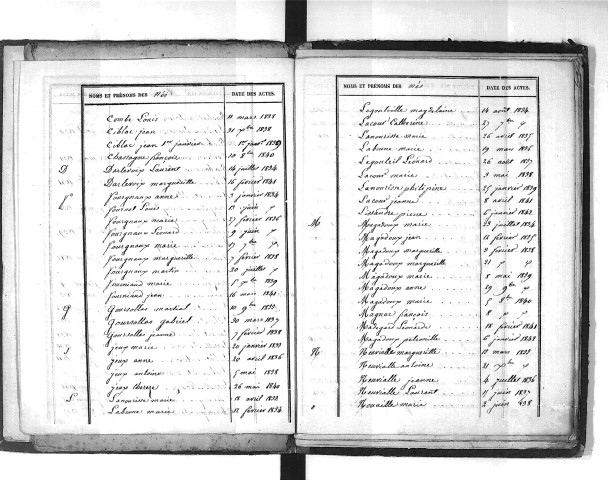 NOMS ET PRÉNOMS DES nés DATE DES ACTES.
Combe Louis 11 mars 1838
Ciblac jean 21 7bre 1838
Ciblac jean 1er janvier 1er janv 1839
Chastagne françois 10 9bre 1840
D Darlevoix Laurent 14 juillet 1834
Darlevoix margueritte 16 février 1841
F Fourgnaux anne 3 janvier 1834
Fournet Louis 13 juin
Fourgnaux marie 27 février 1836
Fourgnaux Léonard 9 juin
Fourgnaux marie 27 7bre
Fourgnaux margueritte 7 février 1838
Fourgnaux martin 20 juillet
Fourniaud marie 5 1839
Fourniaud jean 16 mars 1841
G Goursolles martial 10 9bre 1833
Goursolles Gabriel 30 mars 1837
Goursolles jeanne 7 février 1838
J Jeux marie 20 janvier 1833
Jeux anne 20 avril 1836
Jeux antoine 5 mai 1838
Jeux therese 26 mai 1840
L Lanourisse marie 18 avril 1833
Labonne marie 12 février 1834
NOMS ET PRÉNOMS DES nés DATE DES ACTES.
Legouteille magdelaine 14 août 1834
Lacour Catherine 27 7bre
Lanourisse marie 26 avril 1835
Labonne marie 19 mars 1836
Legouteil Léonard 26 août 1837
Lacour marie 3 mai 1838
Lanourisse philipine 25 janvier 1839
Lacour jeanne 8 avril 1841
pierre 6 janvier 1842
M Magadoux marie 23 juillet 1834
Magadoux jean 12 février 1837
Magadoux margueritte 3 février 1838
Magadoux margueritte 21
Magadoux marie 8 mai 1839
Magadoux anne 19 9bre
Magadoux marie 5 8bre 1840
Magnac françois 8
Léonarde 18 février 1841
Magadoux petronille 6 janvier 1842
N Nouvialle margueritte 10 mars 1833
Nouvialle antoine 21
Nouvialle jeanne 4 juillet 1836
Nouvialle Laurent 11 juin 1837
Nouaille marie 2 juin 1838